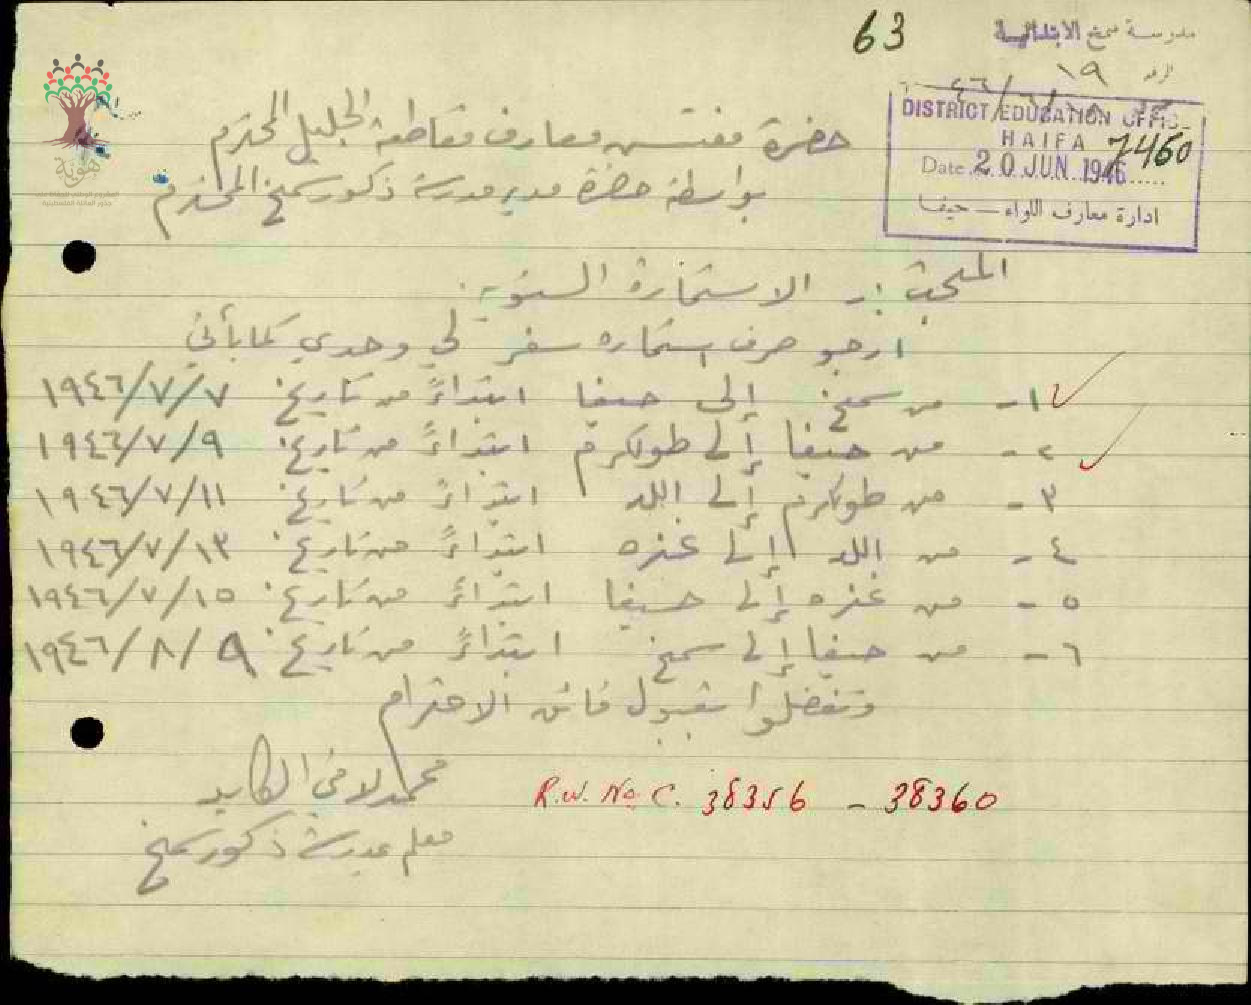 63
مدرسة سمخ الابتدائية
الرقم ١٩
DISTRICT EDUCATION OFFICE
HAIFA 7460
Date 20 JUN 1946
ادارة معارف اللواء — حيفا
حضرة مفتش معارف مقاطعة الجليل المحترم
بواسطة حضرة مدير مدرسة ذكور سمخ المحترم
هوية
الاستمارة السنوية
ارجو صرف استمارة سفر لي وحدي كما يأتي
١- من سمخ إلى حيفا ابتداءً من تاريخ ١٩٤٦/٧/٧
٢- من حيفا إلى طولكرم ابتداءً من تاريخ ١٩٤٦/٧/٩
٣- من طولكرم إلى اللد ابتداءً من تاريخ ١٩٤٦/٧/١١
٤- من اللد إلى غزه ابتداءً من تاريخ ١٩٤٦/٧/١٣
٥- من غزه إلى حيفا ابتداءً من تاريخ ١٩٤٦/٧/١٥
٦- من حيفا إلى سمخ ابتداءً من تاريخ ١٩٤٦/٨/٩
وتفضلوا بقبول فائق الاحترام
محمد لافي الكايد
معلم بمدرسة ذكور سمخ
R.W. No C. 38356 - 38360